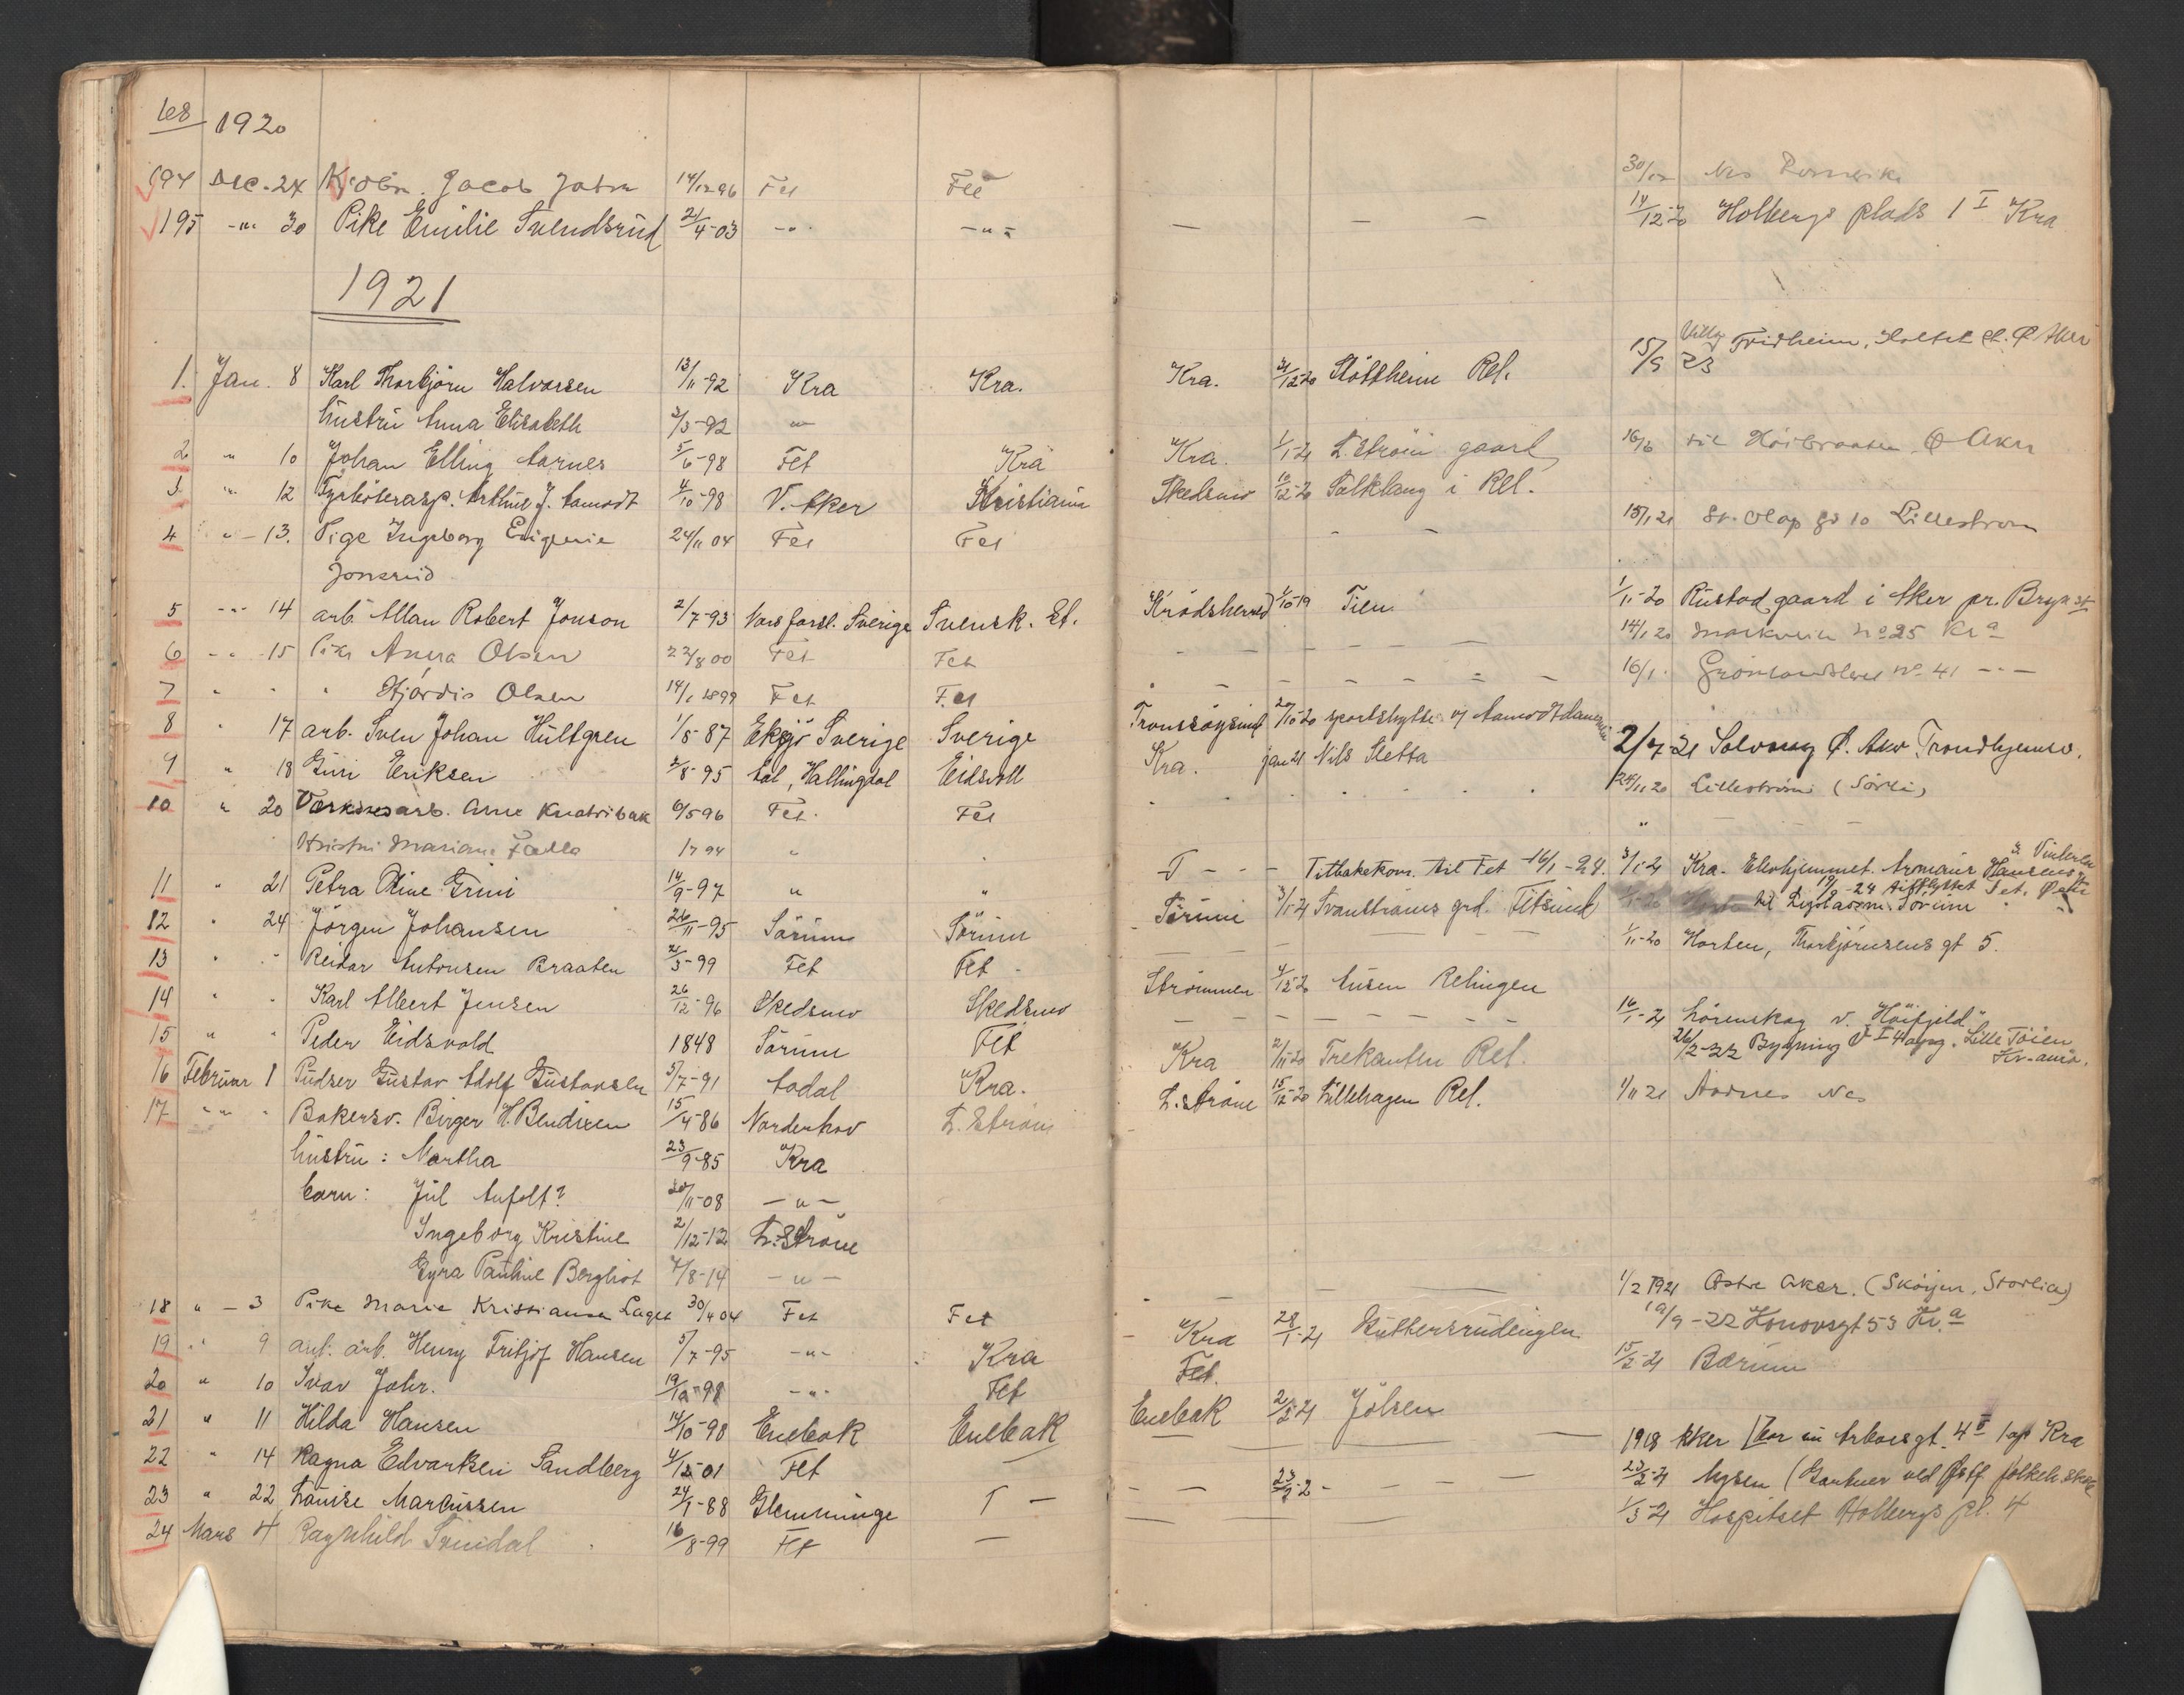 68 1920
194 Dec. 24 Jacob 14/12 96 Fet Fet 30/12 Nes Romerike
195 -"- 30 Pike Emilie Svendsrud 21/4-03 -"- -"- — — — 14/12-20 Holbergs plads 1 I Kra
1921
1. Jan. 8 Karl Thorbjørn Halvorsen 13/11-92 Kra Kra. Kra. 31/12-20 Rel. 15/9 23 Villa Fridheim, Ø. Aker
hustru Anna Elisabeth 2/3-92 "
2 " 10 Johan Elling Aarnes 5/6-98 Fet Kra Kra. 1/1-21 L.strøm gaard 16/6 til Høibraaten Ø Aker
3 " 12 Arthur J. Aamodt 4/10-98 V. Aker Kristiania Skedsmo 10/12-20 i Rel.
4 " - 13. Pige Ingeborg Eugenie 24/11 04 Fet Fet - - 15/1 21 St. Olaf gt 10 Lillestrøm
Jonsrud
5 -"- 14 arb. Allan Robert Jonson 2/7-93 Sverige Svensk. St. Krødsherred 1/10-19 Tien 1/11-20 Rustad gaard i Aker pr. Bryn st
6 - " - 15 Pike Anna Olsen 22/8 00 Fet Fet - - - - - 14/1 20 Markveien no 25 Kra
7 " " " Hjørdis Olsen 14/1 1899 Fet Fet - - - - - 16/1. Grønlandsleret no 41 - " -
8 " 17 arb. Sven Johan Hultgren 1/5 87 Eksjö Sverige Sverige 27/10-20 sportshytte 2/7-21 Solvang Ø. Aker Trondhjemsv.
9 " 18 Guri Eriksen 2/8-95 Aal, Hallingdal Eidsvoll Kra. jan 21 Nils Sletta
10 " 20 Værksarb. Arne 6/5 96 Fet. Fet 24/11 20 Lillestrøm (Sørli)
Hustru Mariane Falla 1794 "
11 " 21 Petra Oline Grini 14/9-97 " " T - - - Tilbakekom. til Fet 16/1-24. 3/1-21 Kra. Elevhjemmet. Armauer Hansens gt
12 " 24 Jørgen Johansen 26/11-95 Sørum Sørum Sørum 3/1-21 Svanstrøms grd. Fetsund Sørum
13 " " Reidar Antonsen Braaten 21/5-99 Fet Fet - — — 1/11-20 Horten, Thorbjørnsens gt 5.
14 " " Karl Albert Jensen 26/12-96 Skedsmo Skedsmo Strømmen 4/12-20 Ausen Relingen
15 " " Peder Eidsvold 1848 Sørum Fet — — — — — — 16/1-21 Lørenskog v. "Høifjeld"
16 Februar 1 Pudser Gustav Adolf Gustavsen 5/7-91 Aadal Kra. Kra 2/11-20 Trekanten Rel. 26/2-22 Bygning V I Hasg. Lille Tøien Kr-ania.
17 -"- " Bakersv. Birger H. Bendixen 15/4-86 Norderhov L. Strøm L. Strøm 15/12-20 Lillehagen Rel. 1/11 21 Aarnes Nes
hustru: Martha 23/9-85 Kra
barn: Jul 20/11-08 - " -
Ingeborg Kristine 2/12-12 L. Strøm
Gyra Pauline Bergliot 4/8-14 - " -
18 " - 3 Pike Marie Kristiansen 30/4 04 Fet Fet - - — — 1/2 1921 Østre Aker. (Skøyen, Storlia)
19 " 9 arb. Henry Fritjof Hansen 5/7-95 - " - Kra - Kra 28/1-21 19/9-22 53 Kr.a
20 " 10 Ivar Johr. 19/12-98 - " - Fet Fet. 15/2-21 Bærum
21 " 11 Hilda Hansen 14/10-98 Enebak Enebak Enebak 2/2-21 Jølsen
22 " 14 Ragna Edvardsen Sandberg 4/12-01 Fet — — — — 1918 Aker [bor nu gt. 4 II Kra
23 " 22 Louise Marcussen 24/1-88 Glemminge T - - - 23/2-2- - - 23/2-21 Mysen (Gartner ved Østf. folkeh.skole
24 Mars 4 Ragnhild Svindal 16/8-99 Fet — — — — 1/3-21 Hospitset Holbergs pl. 4